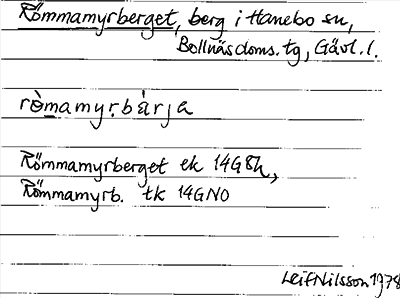 Römmamyrberget, berg i Hanebo sn,
Bollnäs doms. tg, Gävl. l.
ròmamyrbárja
Römmamyrberget ek 14G8h,
Römmamyrb. tk 14GNO
Leif Nilsson 1978